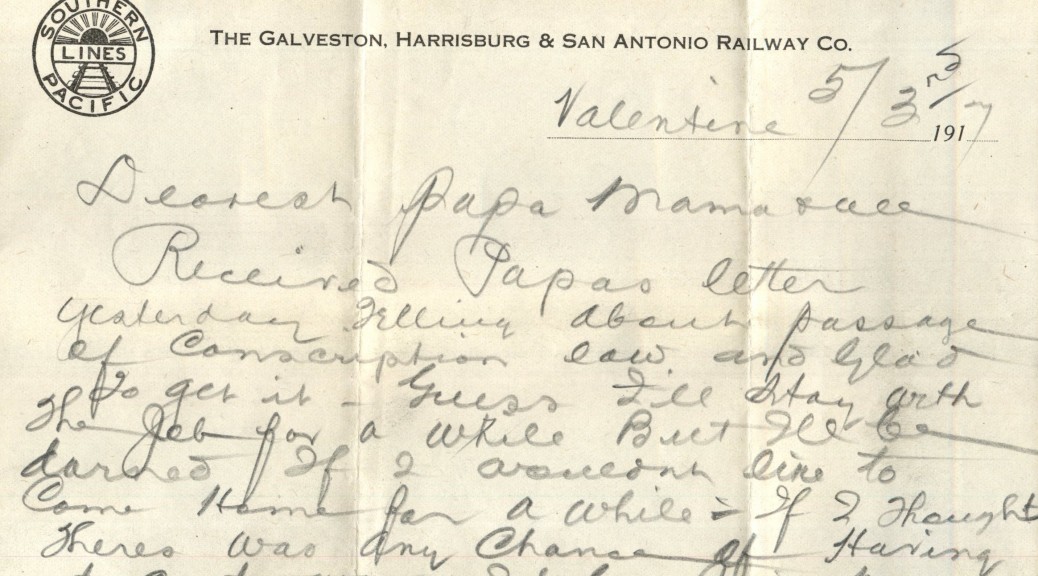 SOUTHERN
LINES
PACIFIC
THE GALVESTON, HARRISBURG & SAN ANTONIO RAILWAY CO.
Valentine 5/3rd/
1917
Dearest Papa Mama & all
Received Papas letter
yesterday Telling about passage
of Conscription law and Glad
To get it - Guess I'll stay with
The Job for a while But Ill be
darned If I wouldnt like to
Come Home for a while - If I Thought
Theres was any Chance of Having